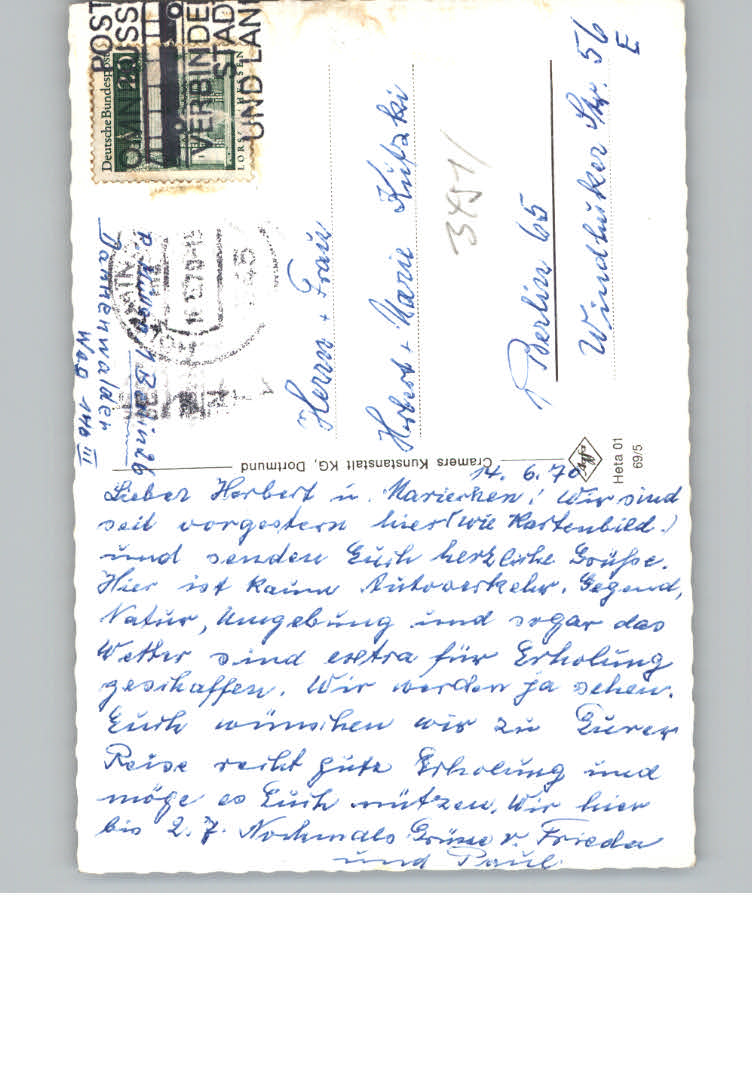 14. 6. 70
Lieber Herbert u. Mariechen! Wir sind
seit vorgestern hier (wie Kartenbild!)
und senden Euch herzliche Grüße.
Hier ist kaum Autoverkehr. Gegend,
Natur, Umgebung und sogar das
Wetter sind extra für Erholung
geschaffen. Wir werden ja sehen.
Euch wünschen wir zu Eurer
Reise recht gute Erholung und
möge es Euch nützen. Wir hier
bis 2. 7. Nochmals Grüsse v. Frieda
und Paul.
Cramers Kunstanstalt KG, Dortmund
Heta 01
69/5
Herrn + Frau
Herbert + Marie
1 Berlin 65
Windhuker Str. 56
E
3451/
1 Berlin 26
Dannenwalder
Weg 140 III
Deutsche Bundespost
20
LORSCH HESSEN
POST
OMNIBUSSE
VERBINDEN
STADT
UND LAND